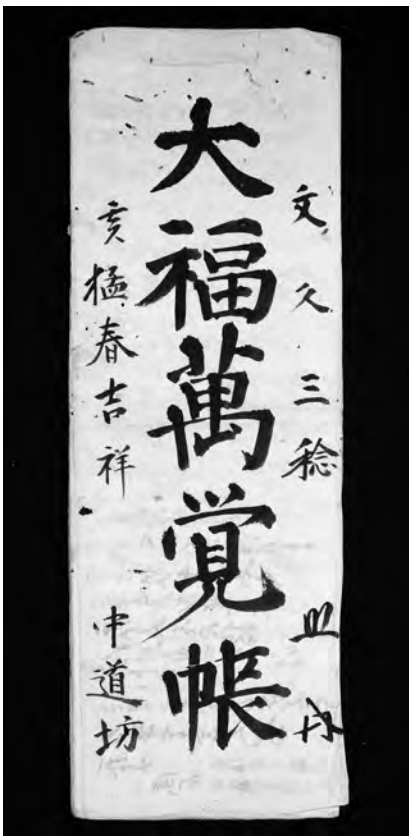 文久三稔
大福萬覚帳
亥猛春吉祥 中道坊